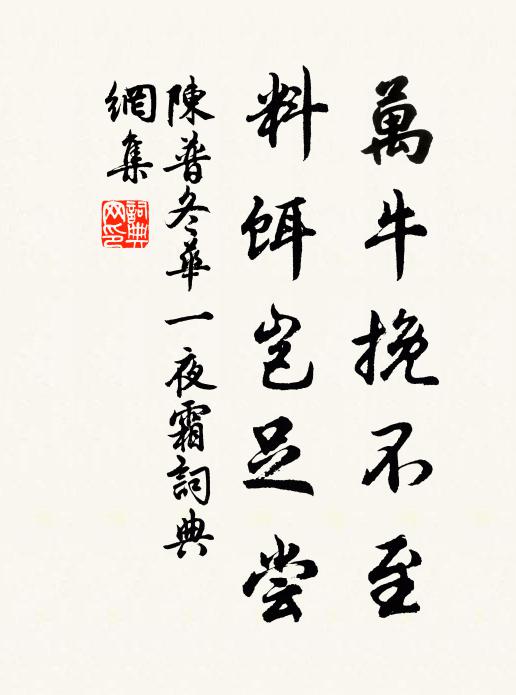 萬牛挽不至
料餌豈足尝
陳普冬華一夜霜詞典
網集
詞典網印